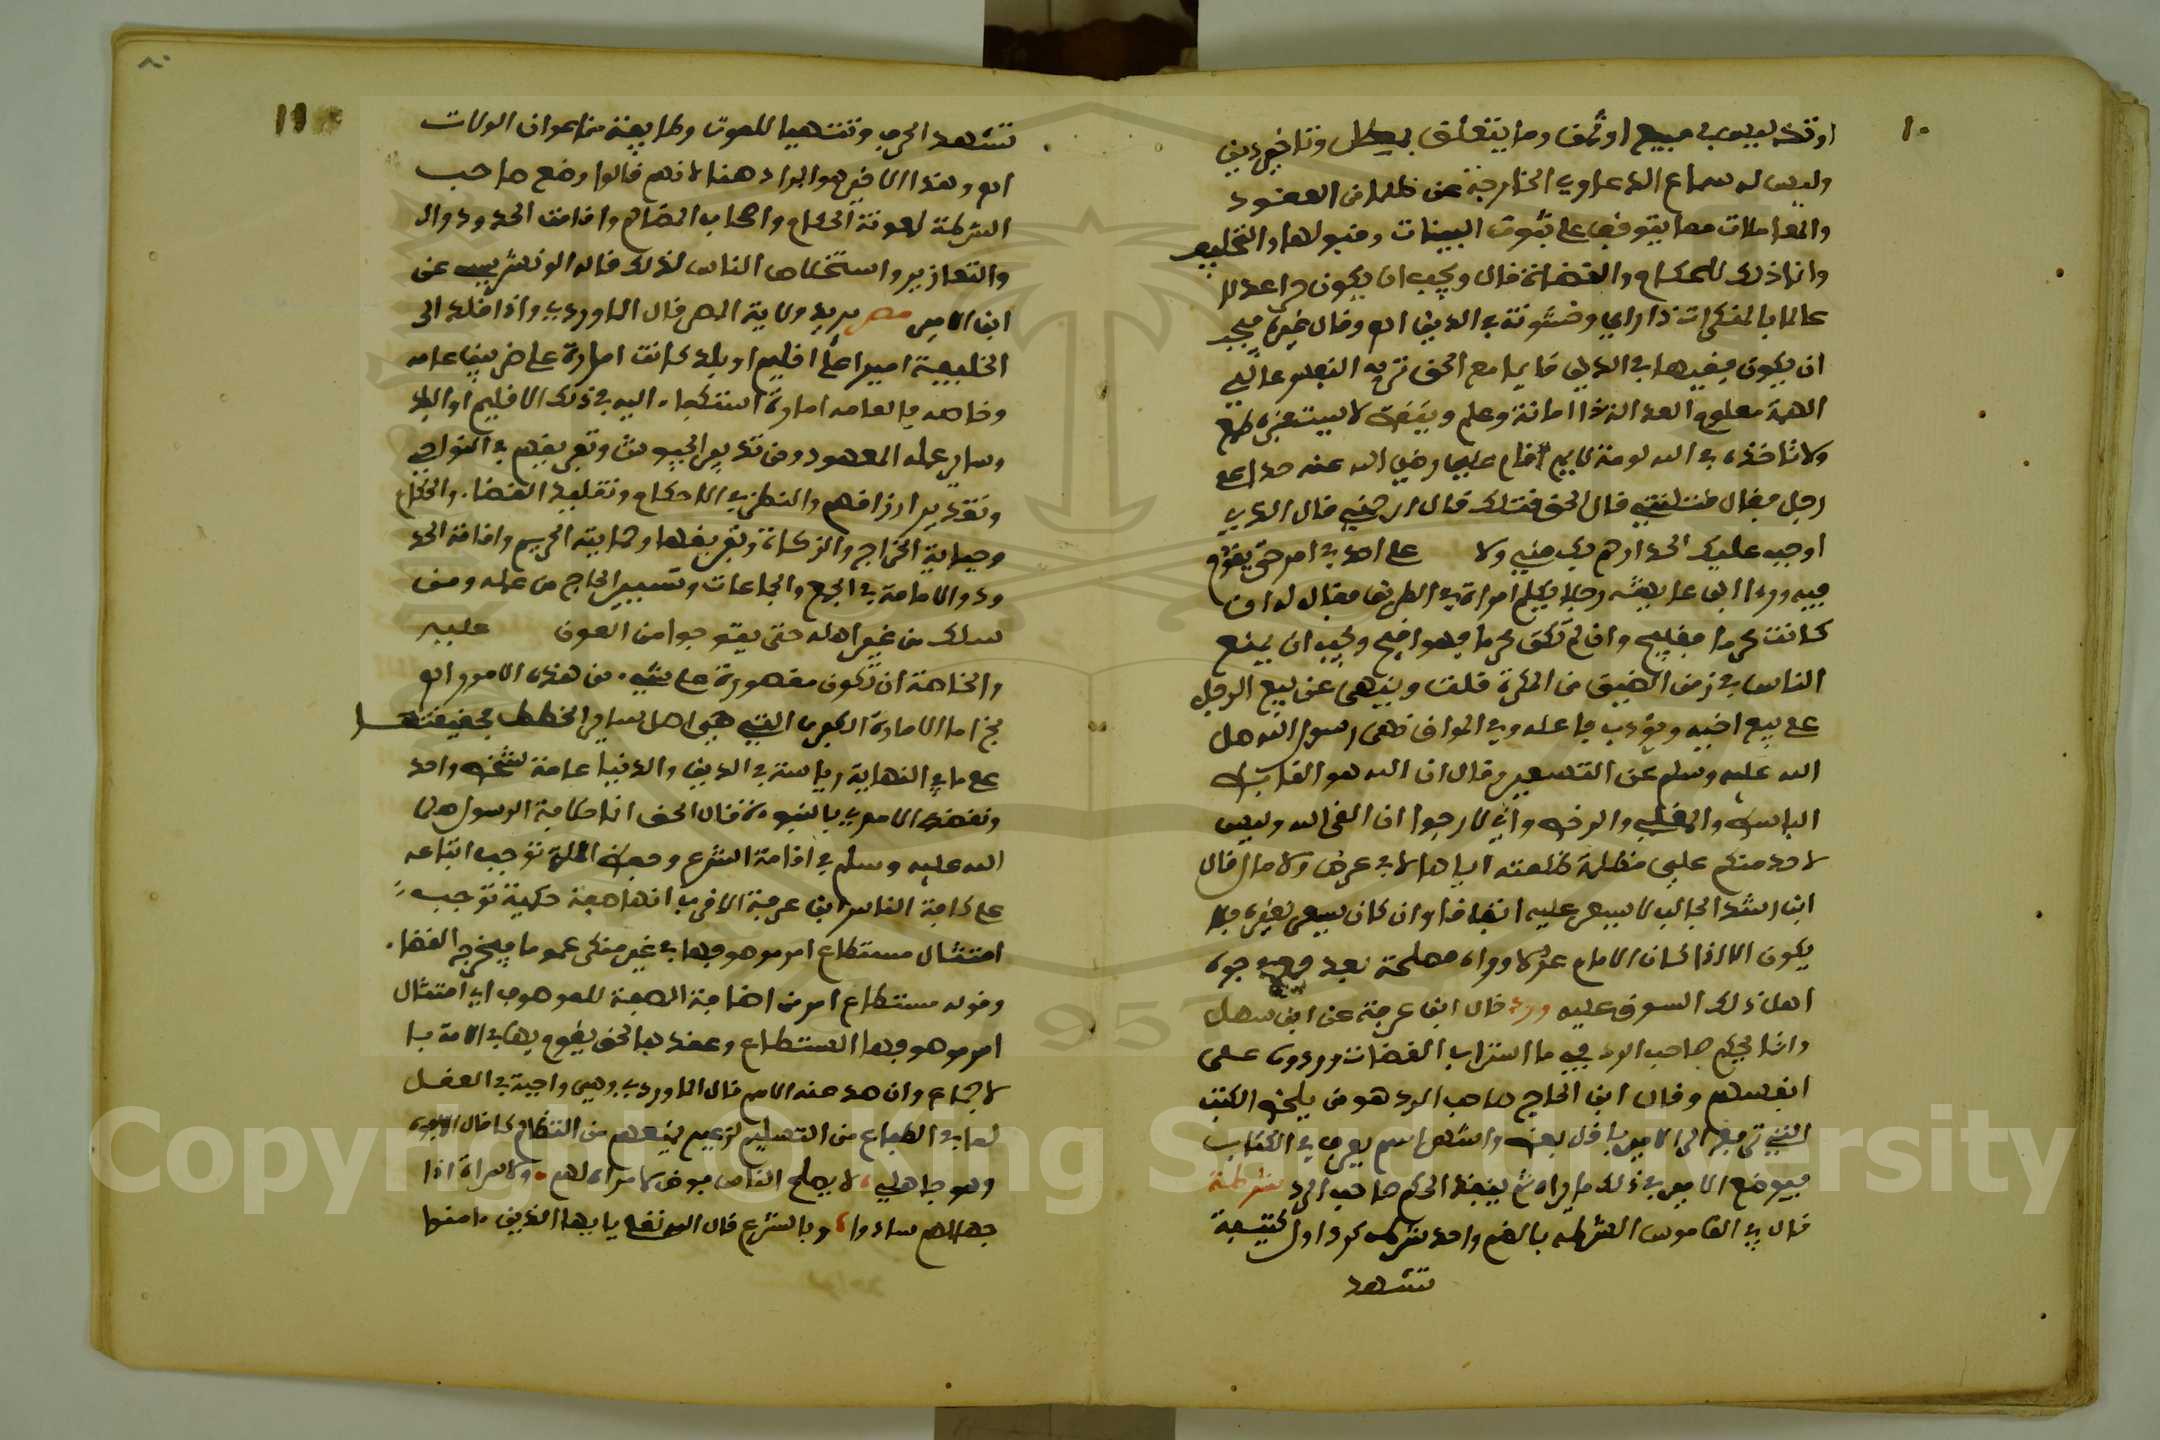 ١٠
او تدليس في مبيع او ثمن وما يتعلق بمطل وتاخير دين
وليس له سماع الدعاوي الخارجة عن ظاهر العقود
والمعاملات مما يتوقف على ثبوت البينات وقبولها والتحليف
وانما ذلك للحكام والقضاة قال ويجب ان يكون حرا عدلا
عالما بالمنكرات ذا راي وخشونة في الدين اهـ وقال غيره يجب
ان يكون فقيها في الدين قايما مع الحق نزيه النفس عالي
الهمة معلوم العدالة ذا امانة وعلم ويقظة لا يستفزه طمع
ولا تاخذه في الله لومة لايم اقام علي رضي الله عنه حدا على
رجل فقال قتلتني قال الحق قتلك قال ارحمني قال الذي
اوجب عليك الحد ارحم بك مني ولا على احد في امر حتى يقوم
فيه
كانت محرما فقبيح وان لم تكن محرما فهو اقبح ويجب ان يمنع
الناس في زمن الضيق من الحكرة قلت وينهى عن بيع الرجل
على بيع اخيه ويؤدب فاعله وفي المواق نهى رسول الله صلى
الله عليه وسلم عن التسعير وقال ان الله هو القابض
الباسط والمغلي والمرخص واني لارجوا ان القى الله وليس
لاحد منكم علي مظلمة ظلمته اياها لا في عرض ولا مال قال
ابن رشد الجالب لا يسعر عليه اتفاقا وان كان يسعر لغيره فلا
يكون الا اذا كان الامام عدلا ورءاه مصلحة بعد جمع وجوه
اهل ذلك السوق عليه ورد قال ابن عرفة عن ابن سهل
وانما يحكم صاحب الرد فيما استراب القضاة وردوه على
انفسهم وقال ابن الحاج صاحب الرد هو من يلخص الكتب
التي ترفع الى الامير
فيوقع الامير في ذلك ما يراه ثم ينفذ الحكم صاحب الرد شرطة
قال في القاموس الشرطة بالضم واحد شرط كصرد اول كتيبة
تشهد
١١
تشهد الحرب وتتهيا للموت وطايفة من اعوان الولات
اهـ وهذا الاخير هو المراد هنا لانهم قالوا وضع صاحب
الشرطة لمعونة الحكام واصحاب المظالم واقامة الحدود وال
والتعازير واستخلاص الناس لذلك قاله الونشريسي عن
ابن الامين مصر يريد ولاية المصر قال الماوردي واذا قلد الى
الخليفة اميرا على اقليم او بلد كانت امارة على ضربين عامه
وخاصه فالعامه امارة استكفاء اليه في ذلك الاقليم او البلد
وساير عمله المعهود من تدبير الجيوش وتفريقهم في النواحي
وتقدير ارزاقهم والنظر في الاحكام وتقليد القضا والحكام
وجباية الخراج والزكاة وتفريقها وحماية الحريم واقامة الحد
ود والامامة في الجمع والجماعات وتسيير الحاج من عمله ومن
سلك من غير اهله حتى يتوجهوا من العون عليه
والخاصة ان تكون مقصورة على شيء من هذه الامور اهـ
الامارة الكبرى التي هي اصل ساير الخطط فحقيقتها
على ما في النهاية رياسة في الدين والدنيا عامة لشخص واحد
ونقضه الامدي بالنبوة قال الحق انها خلافة الرسول صلى
الله عليه وسلم في اقامة الشرع وحفظ الملة توجب اتباعه
على كافة الناس ابن عرفة الاقرب انها صفة حكمية توجب
امتثال مستطاع امر موصوفها في غير منكر عموما فيخرج القضاء
وقوله مستطاع امر من اضافة الصفة للموصوف اي امتثال
امر موصوفها المستطاع وعقدها لمن يقوم بها في الامة با
لاجماع وان صد عنه الاصم قال الماوردي وهي واجبة في العقل
لما في الطباع من التسليم لزعيم يمنعهم من التظالم كما قال الافوه
وهو جاهلي لا يصلح الناس فوضى لا سراة لهم ولا سراة اذا
جهالهم سادوا وبالشرع قال الله تعالى يا ايها الذين ءامنوا
Copyright © King Saud University